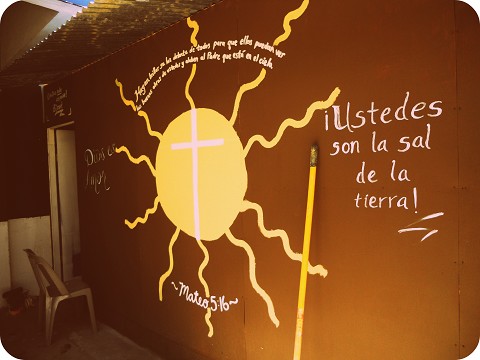 Hagan brillar su luz delante de todos para que ellos puedan ver
las buenas obras de ustedes y alaben al Padre que está en el cielo.
~Mateo 5:16~
Dios es
Amor
¡Ustedes
son la sal
de la
tierra!